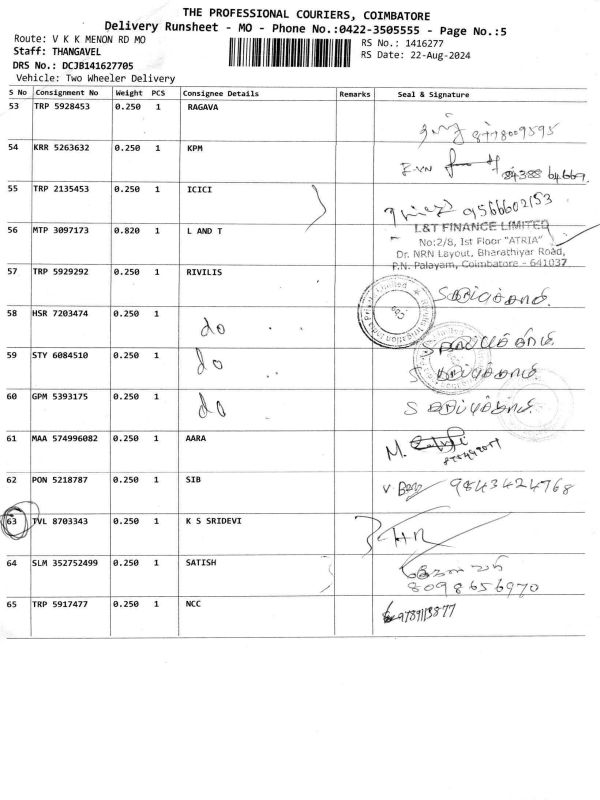 THE PROFESSIONAL COURIERS, COIMBATORE
Delivery Runsheet - MO - Phone No.:0422-3505555 - Page No.:5
Route: V K K MENON RD MO
Staff: THANGAVEL
DRS No.: DCJB141627705
Vehicle: Two Wheeler Delivery
RS No.: 1416277
RS Date: 22-Aug-2024
S No Consignment No Weight PCS Consignee Details Remarks Seal & Signature
53 TRP 5928453 0.250 1 RAGAVA
54 KRR 5263632 0.250 1 KPM
84388 64669.
55 TRP 2135453 0.250 1 ICICI
9566602153
56 MTP 3097173 0.820 1 L AND T
L&T FINANCE LIMITED
No:2/8, 1st Floor "ATRIA"
Dr. NRN Layout, Bharathiyar Road,
P.N. Palayam, Coimbatore - 641037
57 TRP 5929292 0.250 1 RIVILIS
58 HSR 7203474 0.250 1 do
59 STY 6084510 0.250 1 do
60 GPM 5393175 0.250 1 do
61 MAA 574996082 0.250 1 AARA
M.
62 PON 5218787 0.250 1 SIB
9843424768
63 TVL 8703343 0.250 1 K S SRIDEVI
64 SLM 352752499 0.250 1 SATISH
8098656970
65 TRP 5917477 0.250 1 NCC
9789113877